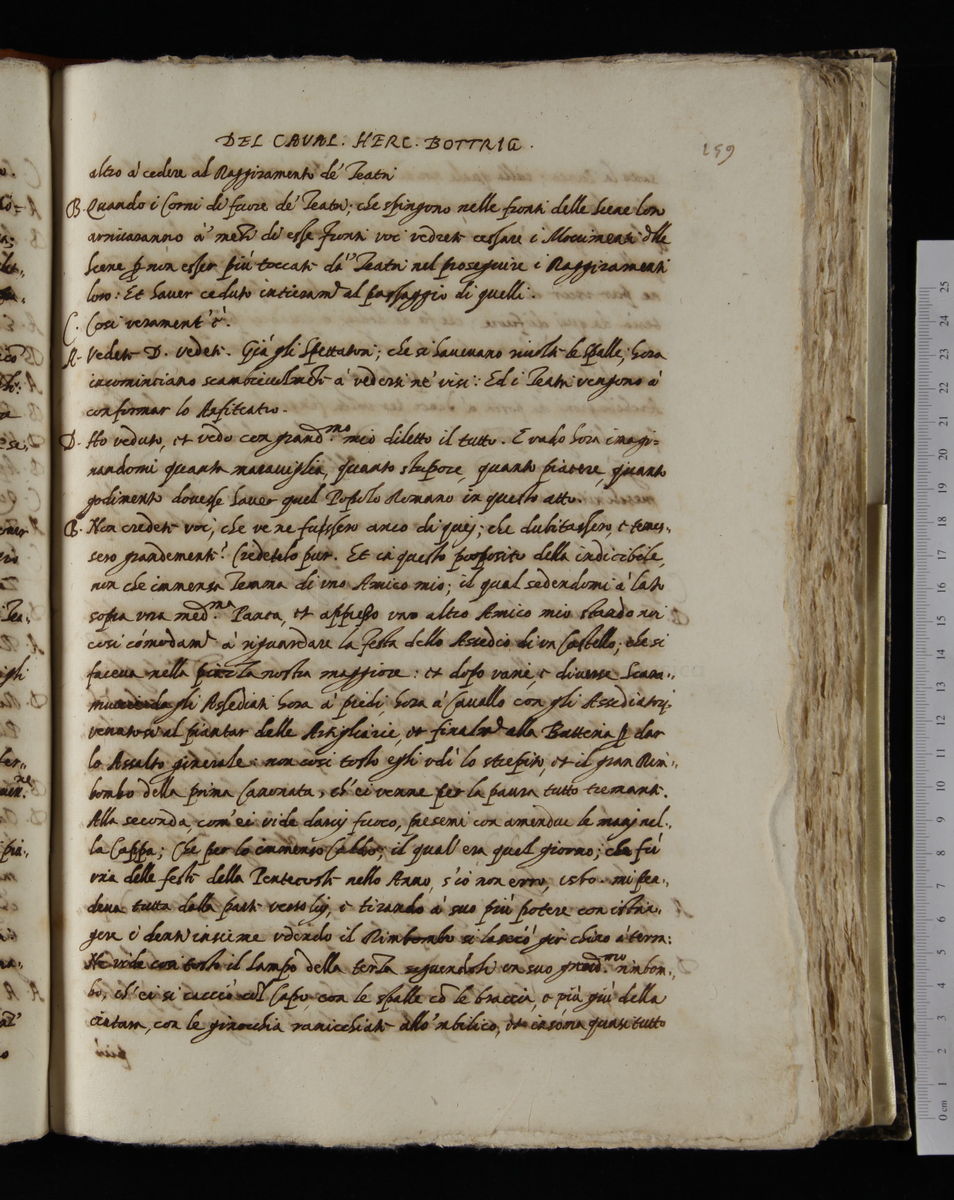 DEL CAVAL. HERC. BOTTRIG.
159
altro à cedere al Raggiramento de' Teatri
B. Quando i Corni di fuore de' Teatri; che spingono nelle fronti delle Scene lon
arrivaranno à metà di esse fronti voi vedrete cessare i Movimenti delle
Scene p non esser più toccati da' Teatri nel proseguire i Raggiramenti
loro: Et haver ceduto intieram.te al passaggio di quelli.
C. Cosi verament' è.
A. Vedete D. vedete. Già gli Spettatori; che si havevano rivolte le spalle; hora
incominciano scambievolmente à vedersi ne' visi: Ed i Teatri vengono à
conformar lo Anfiteatro.
D. Ho veduto, et vedo con grand.mo mio diletto il tutto. E vado hora imagi=
nandomi quanta maraviglia, quanto stupore, quanto piacere, quanto
godimento dovesse haver quel Popolo Romano in questo atto.
B. Non credete voi, che ve ne fussero anco di quej; che dubitassero, e temes-
sero grandemente? Credetelo pur. Et ea questo proposito della indicibile,
non che immensa Temma di uno Amico mio; il qual sedendomi à lato
sopra una med.ma Panca, et appresso uno altro Amico mio stando noi
cosi cómodam.te à riguardare la festa dello Assedio di un Castello; che si
faceva nella piazza nostra maggiore: et dopo varie, e diverse Scara-
muccie da gli Assediati hora à piedi, hora à Cavallo con gli Assediatorj
venutosi al piantar delle Artigliarie, et finalm.te alla Batteria p dar
lo Assalto generale: non cosi tosto egli udì lo strepito, et il gran Rim-
bombo della prima Canonata, ch' ei venne per la paura tutto tremante.
Alla seconda, com' ei vide darvj fuoco, presemi con amendue le manj nel-
la Cappa; Che per lo immenso Caldo; il qual era quel giorno; che fù
una delle feste della Pentecoste nello Anno, s'io non erro, 1560. mi pen-
deva tutta dalla parte verso luj, e tirando à suo più potere con istrin-
gere i denti insieme udendo il Rimbombo si lasciò gir chino à terra:
Ne vide con tosto il Lampo della terza seguendoli un suo grand.mo rimbom-
bo, ch' ei si cacciò col Capo, con le spalle cõ le braccia e più giù della
cintura, con le ginocchia rannicchiate allo 'mbilico, et in soma quasi tutto
più